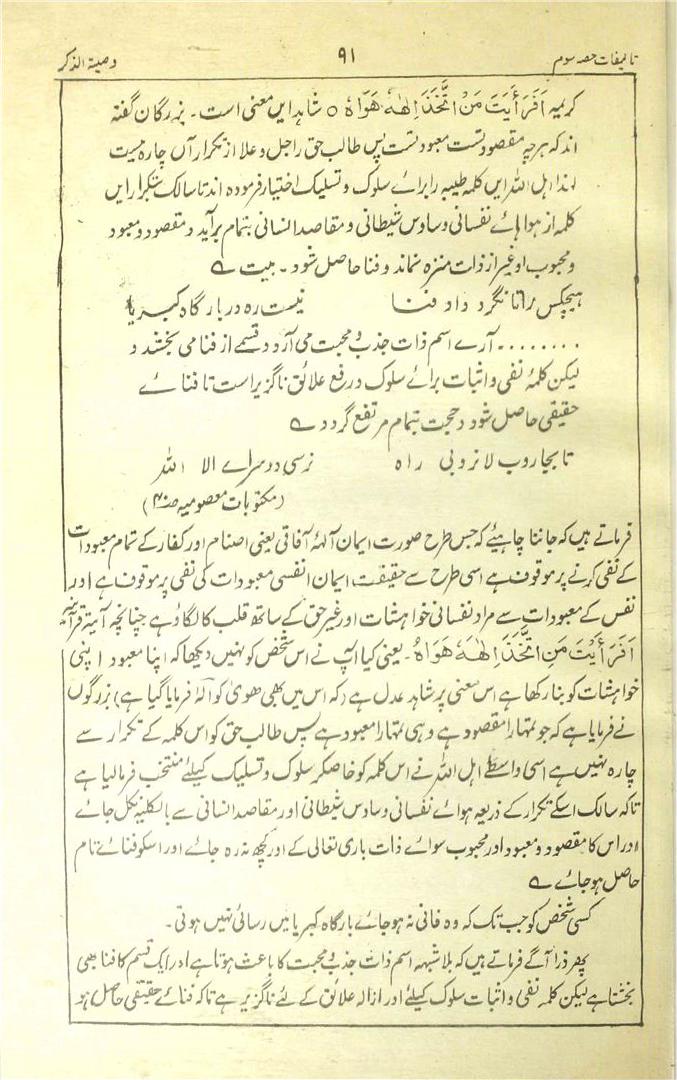 تالیفات حصہ سوم ۹۱ وصیۃ الذکر
کریمہ اَفَرَأَیْتَ مَنْ اتَّخَذَ اِلٰهَهٗ هَوَاهُ ○ شاہد ایں معنی است۔ بزرگان گفتہ
اند کہ ہرچہ مقصود تست معبود تست پس طالب حق را جل وعلا از تکرار آں چارہ نیست
لہٰذا اہل اللہ ایں کلمہ طیبہ را برائے سلوک و تسلیک اختیار فرمودہ اند تا سالک بتکرار ایں
کلمہ از ہواہائے نفسانی و ساوس شیطانی و مقاصد انسانی بتمام برآید و مقصود و معبود
و محبوب او غیر از ذات منزہ نماند و فنا حاصل شود۔ بیت ؎
ہیچکس را تا نگردد او فنا نیست رہ در بارگاہ کبریا
........ آرے اسم ذات جذب و محبت می آرد و قسمے از فنا می بخشند و
لیکن کلمۂ نفی و اثبات برائے سلوک و رفع علائق ناگزیر است تا فنائے
حقیقی حاصل شود و حجت بتمام مرتفع گردد ؎
تا بجاروب لا نروبی راہ نرسی در سرائے الا اللہ
(مکتوبات معصومیہ ص۴۰)
فرماتے ہیں کہ جاننا چاہیئے کہ جس طرح صورت ایمان آلہۂ آفاقی یعنی اصنام اور کفار کے تمام معبودات
کے نفی کرنے پر موقوف ہے اسی طرح سے حقیقت ایمان انفسی معبودات کی نفی پر موقوف ہے اور
نفس کے معبودات سے مراد نفسانی خواہشات اور غیر حق کے ساتھ قلب کا لگاؤ ہے چنانچہ آیۃ قرآنیہ
اَفَرَأَیْتَ مَنِ اتَّخَذَ اِلٰهَهٗ هَوَاهُ۔ یعنی کیا آپ نے اس شخص کو نہیں دیکھا کہ اپنا معبود اپنی
خواہشات کو بنا رکھا ہے اس معنی پر شاہد عدل ہے (کہ اس میں بھی ھویٰ کو الٰہ فرمایا گیا ہے) بزرگوں
نے فرمایا ہے کہ جو تمہارا مقصود ہے وہی تمہارا معبود ہے پس طالب حق کو اس کلمہ کے تکرار سے
چارہ نہیں ہے اسی واسطے اہل اللہ نے اس کلمہ کو خاصکر سلوک و تسلیک کیلئے منتخب فرمالیا ہے
تاکہ سالک اسکے تکرار کے ذریعہ ہوائے نفسانی و ساوس شیطانی اور مقاصد انسانی سے بالکلیہ نکل جائے
اور اس کا مقصود و معبود اور محبوب سوائے ذات باری تعالی کے اور کچھ نہ رہ جائے اور اسکو فنائے تام
حاصل ہوجائے ؎
کسی شخص کو جب تک کہ وہ فانی نہ ہوجائے بارگاہ کبریا میں رسائی نہیں ہوتی۔
پھر ذرا آگے فرماتے ہیں کہ بلا شبہہ اسم ذات جذب و محبت کا باعث ہوتا ہے اور ایک قسم کا فنا بھی
بخشتا ہے لیکن کلمہ نفی و اثبات سلوک کیلئے اور ازالہ علائق کے لئے ناگزیر ہے تاکہ فنائے حقیقی حاصل ہو